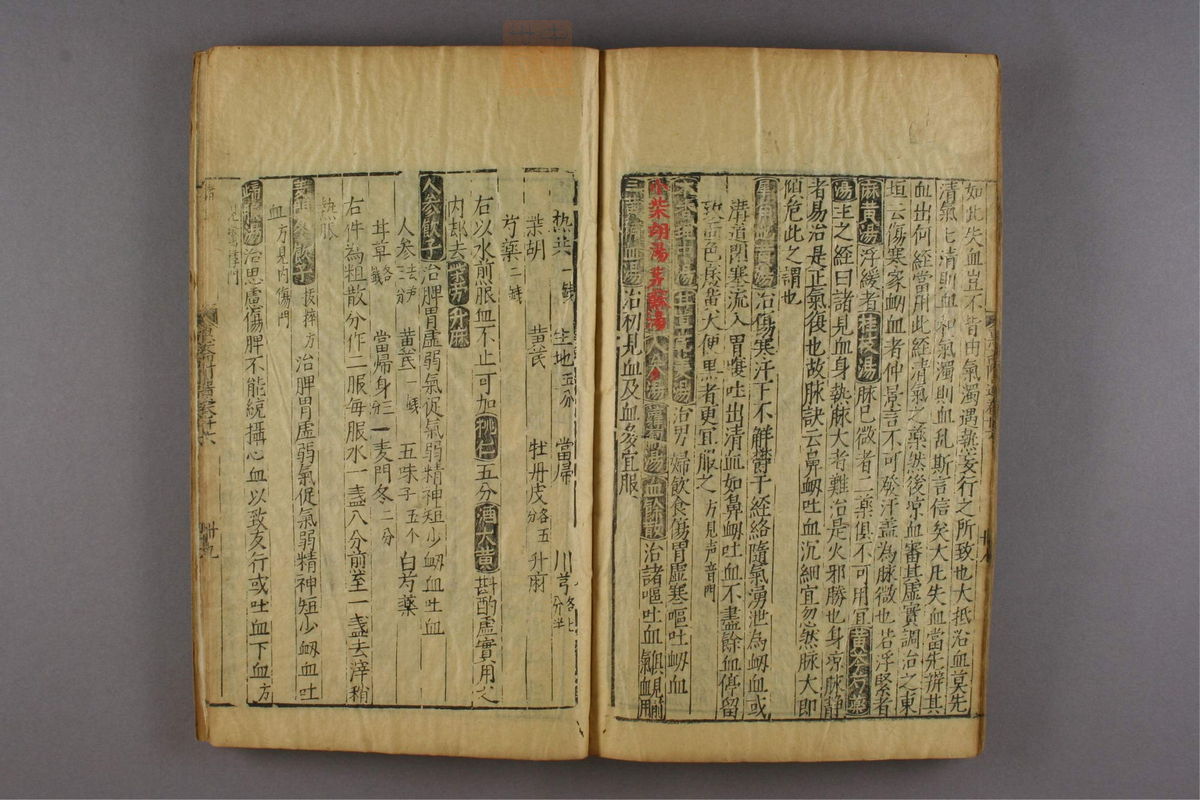 如此失血豈不皆由氣濁遇熱妄行之所致也大抵治血莫先
清氣七清則血和氣濁則血亂斯言信矣大凡失血當先辨其
血出何經當用此經清氣之藥然後凉血審其虛實調治之東
垣云傷寒家衂血者仲景言不可發汗盖為脉微也若浮緊者
麻黄湯浮緩者桂枝湯脉已微者二藥俱不可用宜黄芩芍藥
湯主之經曰諸見血身熱脉大者難治是火邪勝也身凉脉静
者易治是正氣復也故脉訣云鼻衂吐血沉細宜忽然脉大即
傾危此之謂也
犀角地黄湯治傷寒汗下不解欝于經絡隨氣湧泄為衂血或
清道閉塞流入胃嗌吐出清血如鼻衂吐血不盡餘血停留
致面色痿黄大便黒者更宜服之方見声音門
木香理中湯生黄芪湯治男婦飲食傷胃虛寒嘔吐衂血
小柴胡湯芎蘇湯湯血餘散治諸嘔吐血
三黄補血湯治初見血及血多宜服
热芐一錢 生地五分 當歸 川芎各七分半
柴胡 黄芪 牡丹皮各五分 升麻
芍藥二錢
右以水煎服血不止可加桃仁五分酒大黄斟酌虛實用之
内却去柴胡升麻
人参飲子治脾胃虛弱氣促氣弱精神短少衂血吐血
人参去芦三分 黄芪一錢 五味子五个 白芍藥
甘草各一錢 當歸身三分 麥門冬二分
右件為粗散分作二服每服水一盞八分煎至一盞去滓稍
热服
麥門冬飲子拔粹方治脾胃虛弱氣促氣弱精神短少衂血吐
血方見内傷門
歸脾湯治思慮傷脾不能統攝心血以致妄行或吐血下血方
廿九